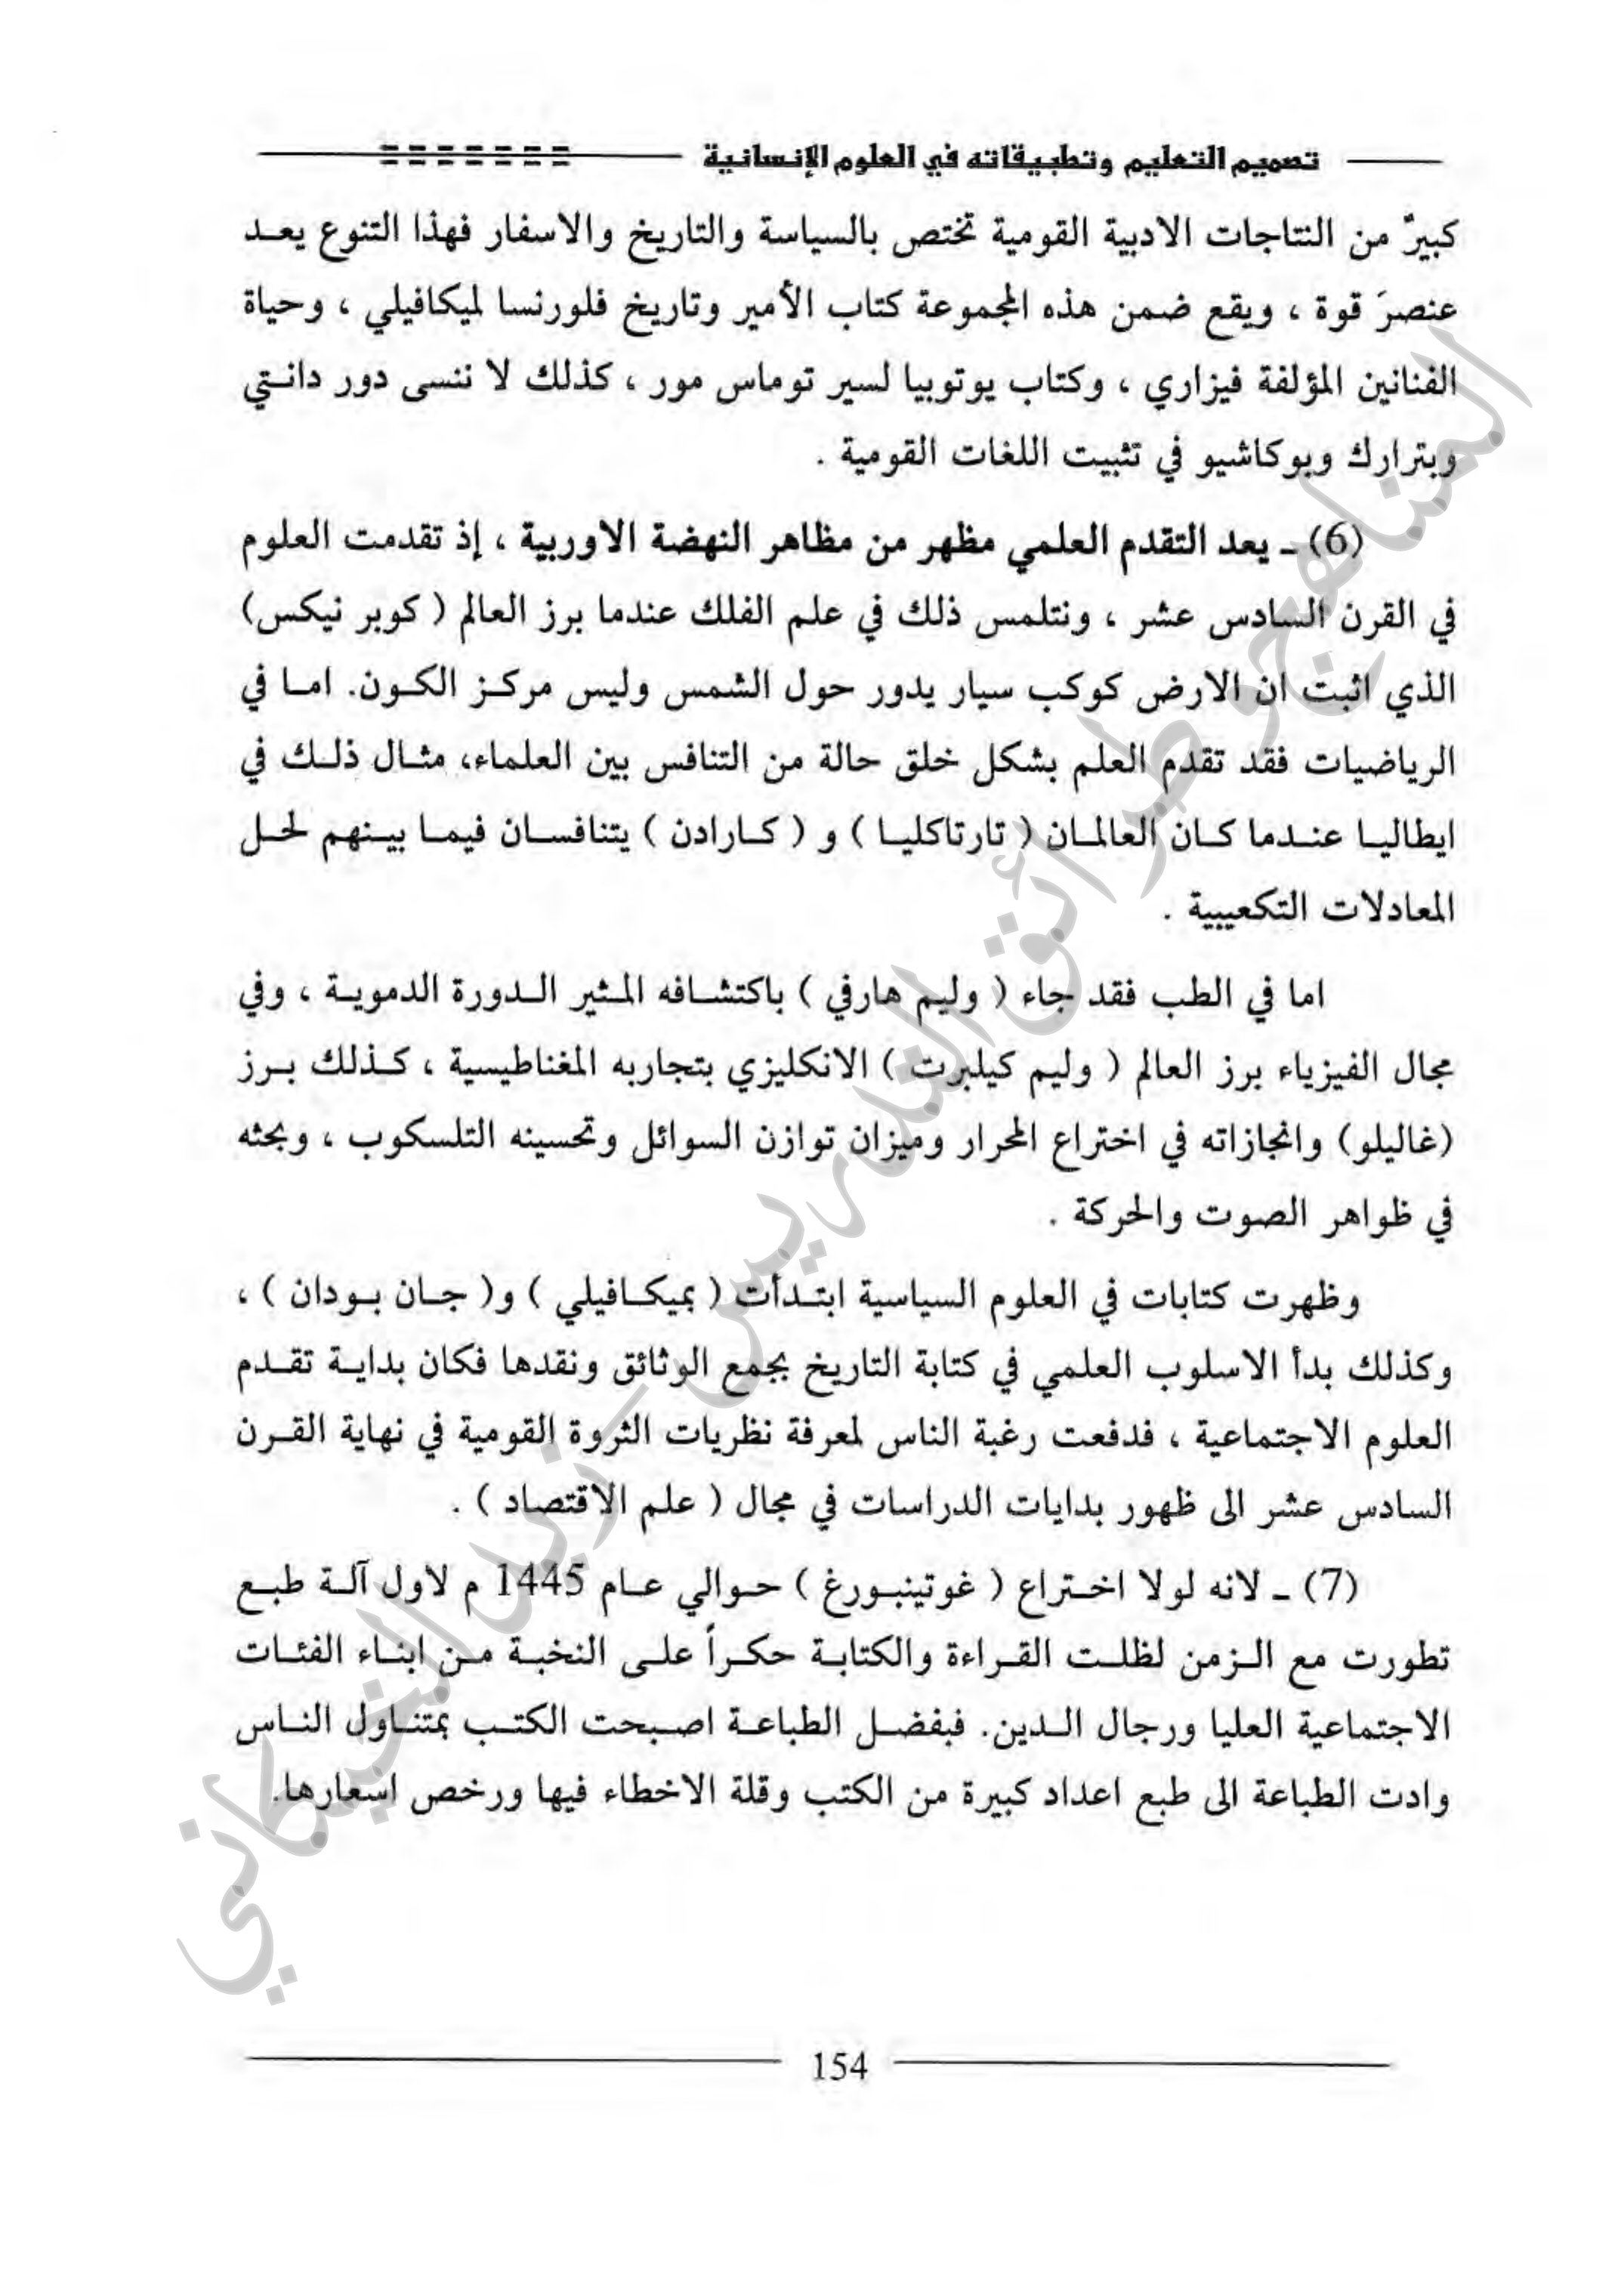 تصميم التعليم وتطبيقاته في العلوم الإنسانية
كبيرٌ من النتاجات الادبية القومية تختص بالسياسة والتاريخ والاسفار فهذا التنوع يعد
عنصرَ قوة ، ويقع ضمن هذه المجموعة كتاب الأمير وتاريخ فلورنسا لميكافيلي ، وحياة
الفنانين المؤلفة فيزاري ، وكتاب يوتوبيا لسير توماس مور ، كذلك لا ننسى دور دانتي
وبترارك وبوكاشيو في تثبيت اللغات القومية .
(6) ـ يعد التقدم العلمي مظهر من مظاهر النهضة الاوربية ، إذ تقدمت العلوم
في القرن السادس عشر ، ونتلمس ذلك في علم الفلك عندما برز العالم ( كوبر نيكس)
الذي اثبت ان الارض كوكب سيار يدور حول الشمس وليس مركز الكون. اما في
الرياضيات فقد تقدم العلم بشكل خلق حالة من التنافس بين العلماء، مثال ذلك في
ايطاليا عندما كان العالمان ( تارتاكليا ) و ( كارادن ) يتنافسان فيما بينهم لحل
المعادلات التكعيبية .
اما في الطب فقد جاء ( وليم هارفي ) باكتشافه المثير الدورة الدموية ، وفي
مجال الفيزياء برز العالم ( وليم كيلبرت ) الانكليزي بتجاربه المغناطيسية ، كذلك برز
(غاليلو) وانجازاته في اختراع المحرار وميزان توازن السوائل وتحسينه التلسكوب ، وبحثه
في ظواهر الصوت والحركة .
وظهرت كتابات في العلوم السياسية ابتدأت ( بميكافيلي ) و( جان بودان ) ،
وكذلك بدأ الاسلوب العلمي في كتابة التاريخ بجمع الوثائق ونقدها فكان بداية تقدم
العلوم الاجتماعية ، فدفعت رغبة الناس لمعرفة نظريات الثروة القومية في نهاية القرن
السادس عشر الى ظهور بدايات الدراسات في مجال ( علم الاقتصاد ) .
(7) ـ لانه لولا اختراع ( غوتينبورغ ) حوالي عام 1445 م لاول آلة طبع
تطورت مع الزمن لظلت القراءة والكتابة حكراً على النخبة من ابناء الفئات
الاجتماعية العليا ورجال الدين. فبفضل الطباعة اصبحت الكتب بمتناول الناس
وادت الطباعة الى طبع اعداد كبيرة من الكتب وقلة الاخطاء فيها ورخص اسعارها.
154
المناهج وطرائق التدريس - زيد الخيكاني